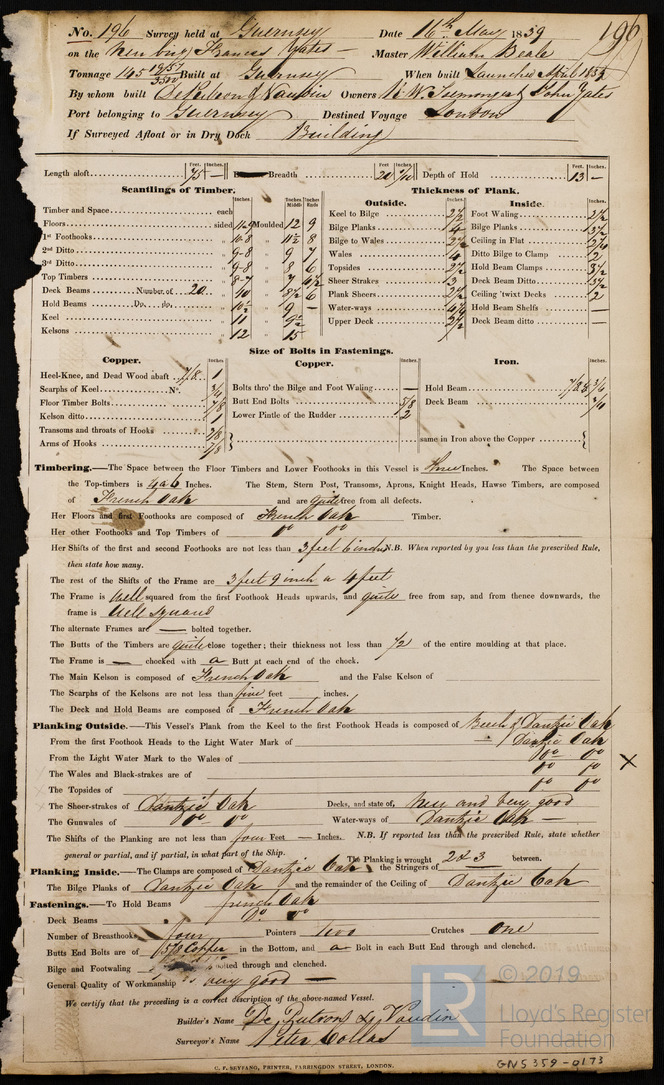 No. 196 Survey held at Guernsey Date 16th May 1839 196
on the New brig Frances Yates Master William Beale
Tonnage 145 Built at Guernsey When built Launched April 1839
By whom built De Putron & Vaudin Owners John Yates
Port belonging to Guernsey Destined Voyage London
If Surveyed Afloat or in Dry Dock Building
Feet. Inches. Feet. Inches. Feet. Inches.
Length aloft 75 — Breadth 20 Depth of Hold 13 —
Scantlings of Timber.
Thickness of Plank.
Inches. Inches Middle Inches Ends
Timber and Space each
Floors sided Moulded 12 9
1st Foothooks 11½ 8
2nd Ditto 9-8 9 7
3rd Ditto 9-8 8 6
Top Timbers 8-7 7
Deck Beams Number of 20 10 8½ 6
Hold Beams Do. do. 9 —
Keel 11
Kelsons 12 15
Outside. Inches.
Keel to Bilge 2½
Bilge Planks 4
Bilge to Wales 2½
Wales 4
Topsides 2½
Sheer Strakes 3
Plank Sheers 2½
Water-ways
Upper Deck 2½
Inside. Inches.
Foot Waling 2½
Bilge Planks 3½
Ceiling in Flat
Ditto Bilge to Clamp 2
Hold Beam Clamps 3½
Deck Beam Ditto 3½
Ceiling 'twixt Decks 2
Hold Beam Shelfs —
Deck Beam ditto —
Size of Bolts in Fastenings.
Copper. Inches.
Heel-Knee, and Dead Wood abaft 7/8 1
Scarphs of Keel N°. 3/4
Floor Timber Bolts 7/8
Kelson ditto 1
Transoms and throats of Hooks 7/8
Arms of Hooks 7/8
Copper. Inches.
Bolts thro' the Bilge and Foot Waling —
Butt End Bolts 5/8
Lower Pintle of the Rudder 2
Iron. Inches.
Hold Beam 7/8 & 3/4
Deck Beam 3/4
same in Iron above the Copper
Timbering.—The Space between the Floor Timbers and Lower Foothooks in this Vessel is three Inches. The Space between
the Top-timbers is 4 a 6 Inches. The Stem, Stern Post, Transoms, Aprons, Knight Heads, Hawse Timbers, are composed
of French Oak and are quite free from all defects.
Her Floors and first Foothooks are composed of French Oak Timber.
Her other Foothooks and Top Timbers of Do Do
Her Shifts of the first and second Foothooks are not less than 3 feet 6 inches N.B. When reported by you less than the prescribed Rule,
then state how many.
The rest of the Shifts of the Frame are 3 feet 9 inch a 4 feet
The Frame is well squared from the first Foothook Heads upwards, and quite free from sap, and from thence downwards, the
frame is well squared
The alternate Frames are — bolted together.
The Butts of the Timbers are quite close together; their thickness not less than 1/2 of the entire moulding at that place.
The Frame is — chocked with a Butt at each end of the chock.
The Main Kelson is composed of French Oak and the False Kelson of
The Scarphs of the Kelsons are not less than five feet — inches.
The Deck and Hold Beams are composed of French Oak
Planking Outside.—This Vessel's Plank from the Keel to the first Foothook Heads is composed of Beech & Dantzic Oak
From the first Foothook Heads to the Light Water Mark of Dantzic Oak
From the Light Water Mark to the Wales of Do Do X
The Wales and Black-strakes are of Do Do
The Topsides of Do Do
The Sheer-strakes of Dantzic Oak Decks, and state of, New and very good
The Gunwales of Do Do Water-ways of Dantzic Oak —
The Shifts of the Planking are not less than four Feet — Inches. N.B. If reported less than the prescribed Rule, state whether
general or partial, and if partial, in what part of the Ship. The Planking is wrought 2 & 3 between.
Planking Inside.—The Clamps are composed of Dantzic Oak the Stringers of
The Bilge Planks of Dantzic Oak and the remainder of the Ceiling of Dantzic Oak
Fastenings.—To Hold Beams french Oak
Deck Beams Do Do
Number of Breasthooks four Pointers two Crutches one
Butts End Bolts are of 5/8 Copper in the Bottom, and a Bolt in each Butt End through and clenched.
Bilge and Footwaling bolted through and clenched.
General Quality of Workmanship is very good —
We certify that the preceding is a correct description of the above-named Vessel.
Builder's Name De Putron & Vaudin
Surveyor's Name Peter Collas
C. F. SEYFANG, PRINTER, FARRINGDON STREET, LONDON.
LR © 2019
Lloyd's Register
Foundation
GNS359-0173